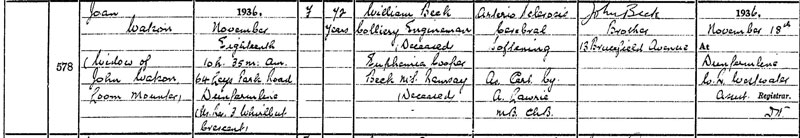 578
Joan
Watson
(Widow of
John Watson,
Loom Mounter)
1936.
November
Eighteenth
10h. 35m. A.M.
64 Leys Park Road
Dunfermline
(Us. Res. 3 Whirlbut
Crescent)
F
42
Years
William Beck
Colliery Engineman
(Deceased)
Euphemia Cooper
Beck M.S. Ramsay
(Deceased)
Arterio Sclerosis
Cerebral
Softening
As Cert. by
A. Lawrie
M.B. Ch.B.
John Beck
Brother
13 Brucefield Avenue
1936.
November 18th
At
Dunfermline
Westwater
Asst. Registrar.